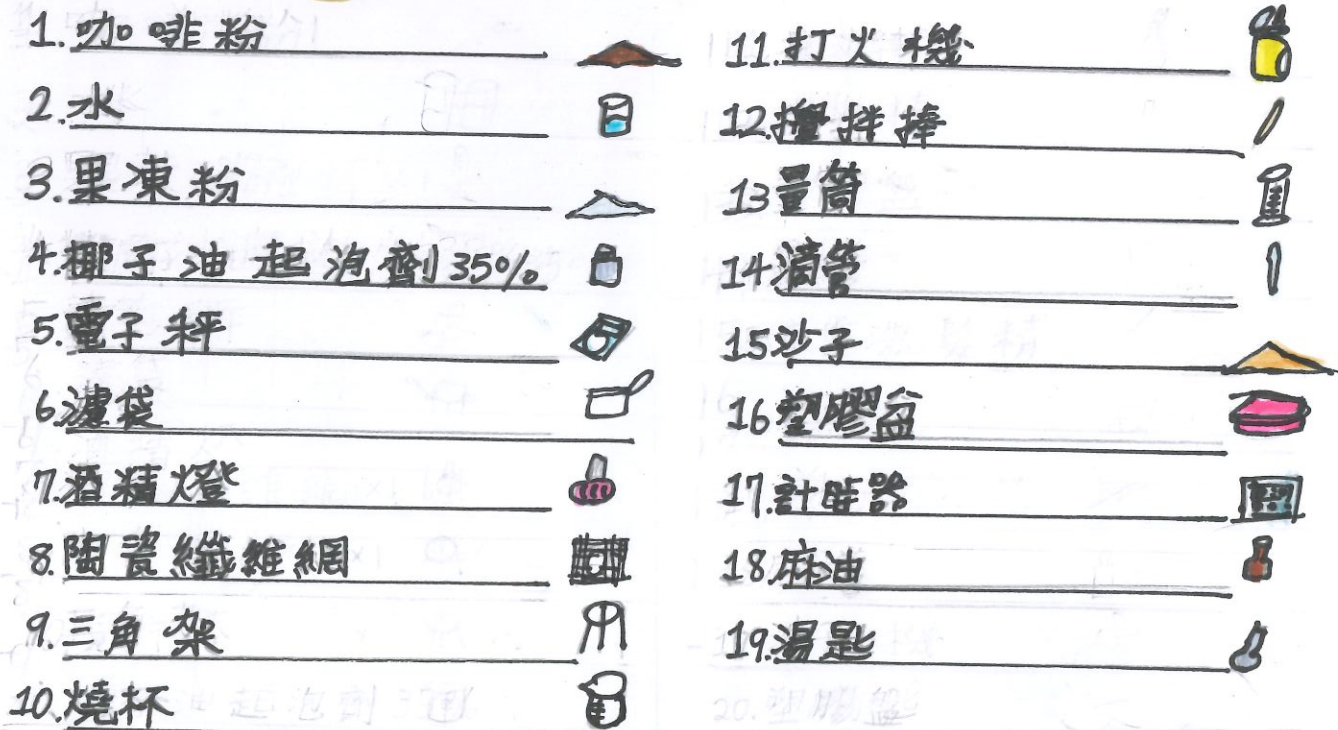 1.咖啡粉
2.水
3.果凍粉
4.椰子油起泡劑35%
5.電子秤
6.濾袋
7.酒精燈
8.陶瓷纖維網
9.三角架
10.燒杯
11.打火機
12.攪拌棒
13量筒
14滴管
15沙子
16塑膠盆
17.計時器
18.麻油
19.湯匙